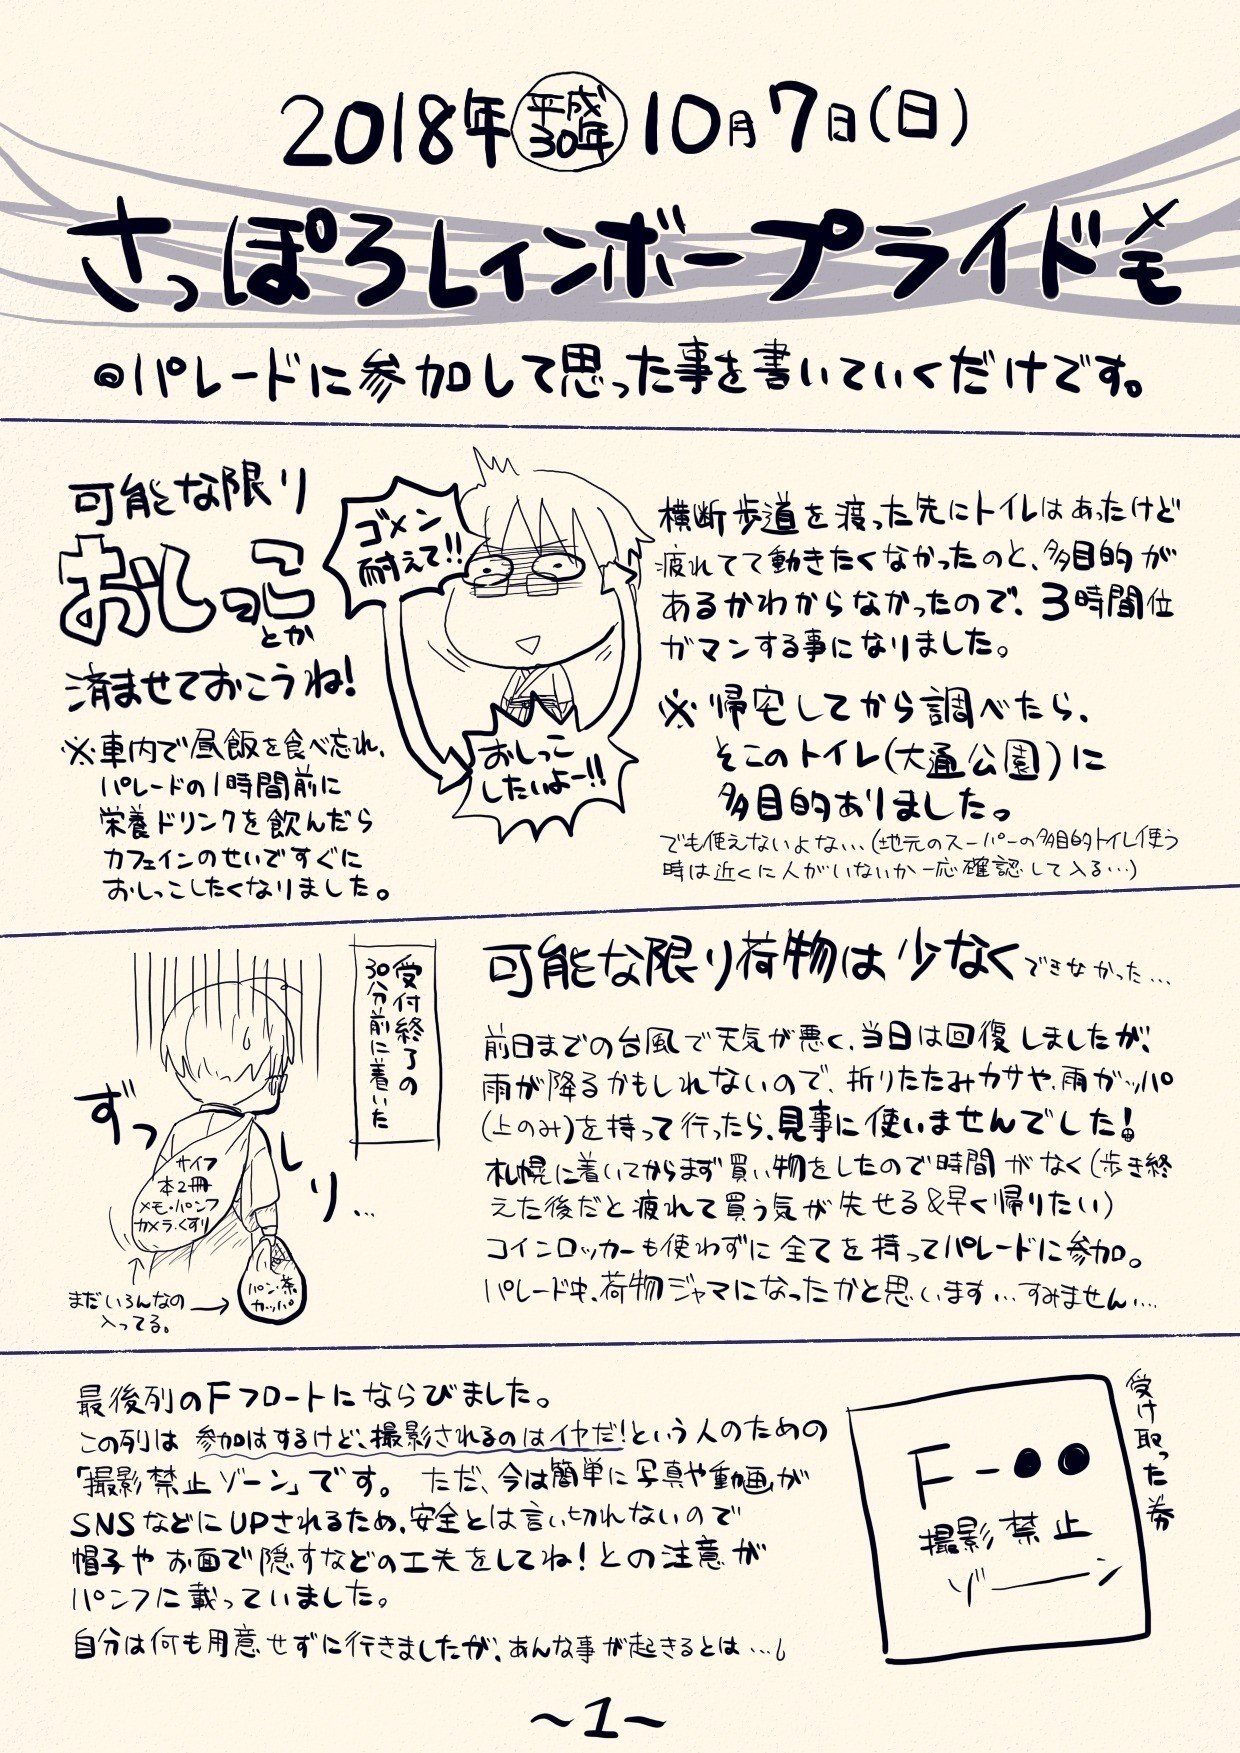 2018年 平成30年 10月7日(日)
さっぽろレインボープライドメモ
@パレードに参加して思った事を書いていくだけです。
可能な限り
おしっこ
とか
済ませておこうね!
※車内で昼飯を食べ忘れ、
パレードの1時間前に
栄養ドリンクを飲んだら
カフェインのせいですぐに
おしっこしたくなりました。
ゴメン
耐えて!!
おしっこ
したいよー!!
横断歩道を渡った先にトイレはあったけど
疲れてて動きたくなかったのと、多目的が
あるかわからなかったので、3時間位
ガマンする事になりました。
※帰宅してから調べたら、
そこのトイレ(大通公園)に
多目的ありました。
でも使えないよな…(地元のスーパーの多目的トイレ使う
時は近くに人がいないか一応確認して入る…)
受付終了の
30分前に着いた
ずっ
しり…
サイフ
本2冊
メモ・パンフ
カメラ・くすり
パン・茶
カッパ
まだいろんなの
入ってる。
可能な限り荷物は少なくできなかった…
前日までの台風で天気が悪く、当日は回復しましたが、
雨が降るかもしれないので、折りたたみカサや、雨ガッパ
(上のみ)を持って行ったら、見事に使いませんでした!
札幌に着いてからまず買い物をしたので時間がなく(歩き終
えた後だと疲れて買う気が失せる&早く帰りたい)
コインロッカーも使わずに全てを持ってパレードに参加。
パレード中、荷物ジャマになったかと思います…すみません…
最後列のFフロートにならびました。
この列は 参加はするけど、撮影されるのはイヤだ!という人のための
「撮影禁止ゾーン」です。 ただ、今は簡単に写真や動画が
SNSなどにUPされるため、安全とは言い切れないので
帽子やお面で隠すなどの工夫をしてね!との注意が
パンフに載っていました。
自分は何も用意せずに行きましたが、あんな事が起きるとは…。
受け取った券
F-●●
撮影禁止
ゾーン
~1~